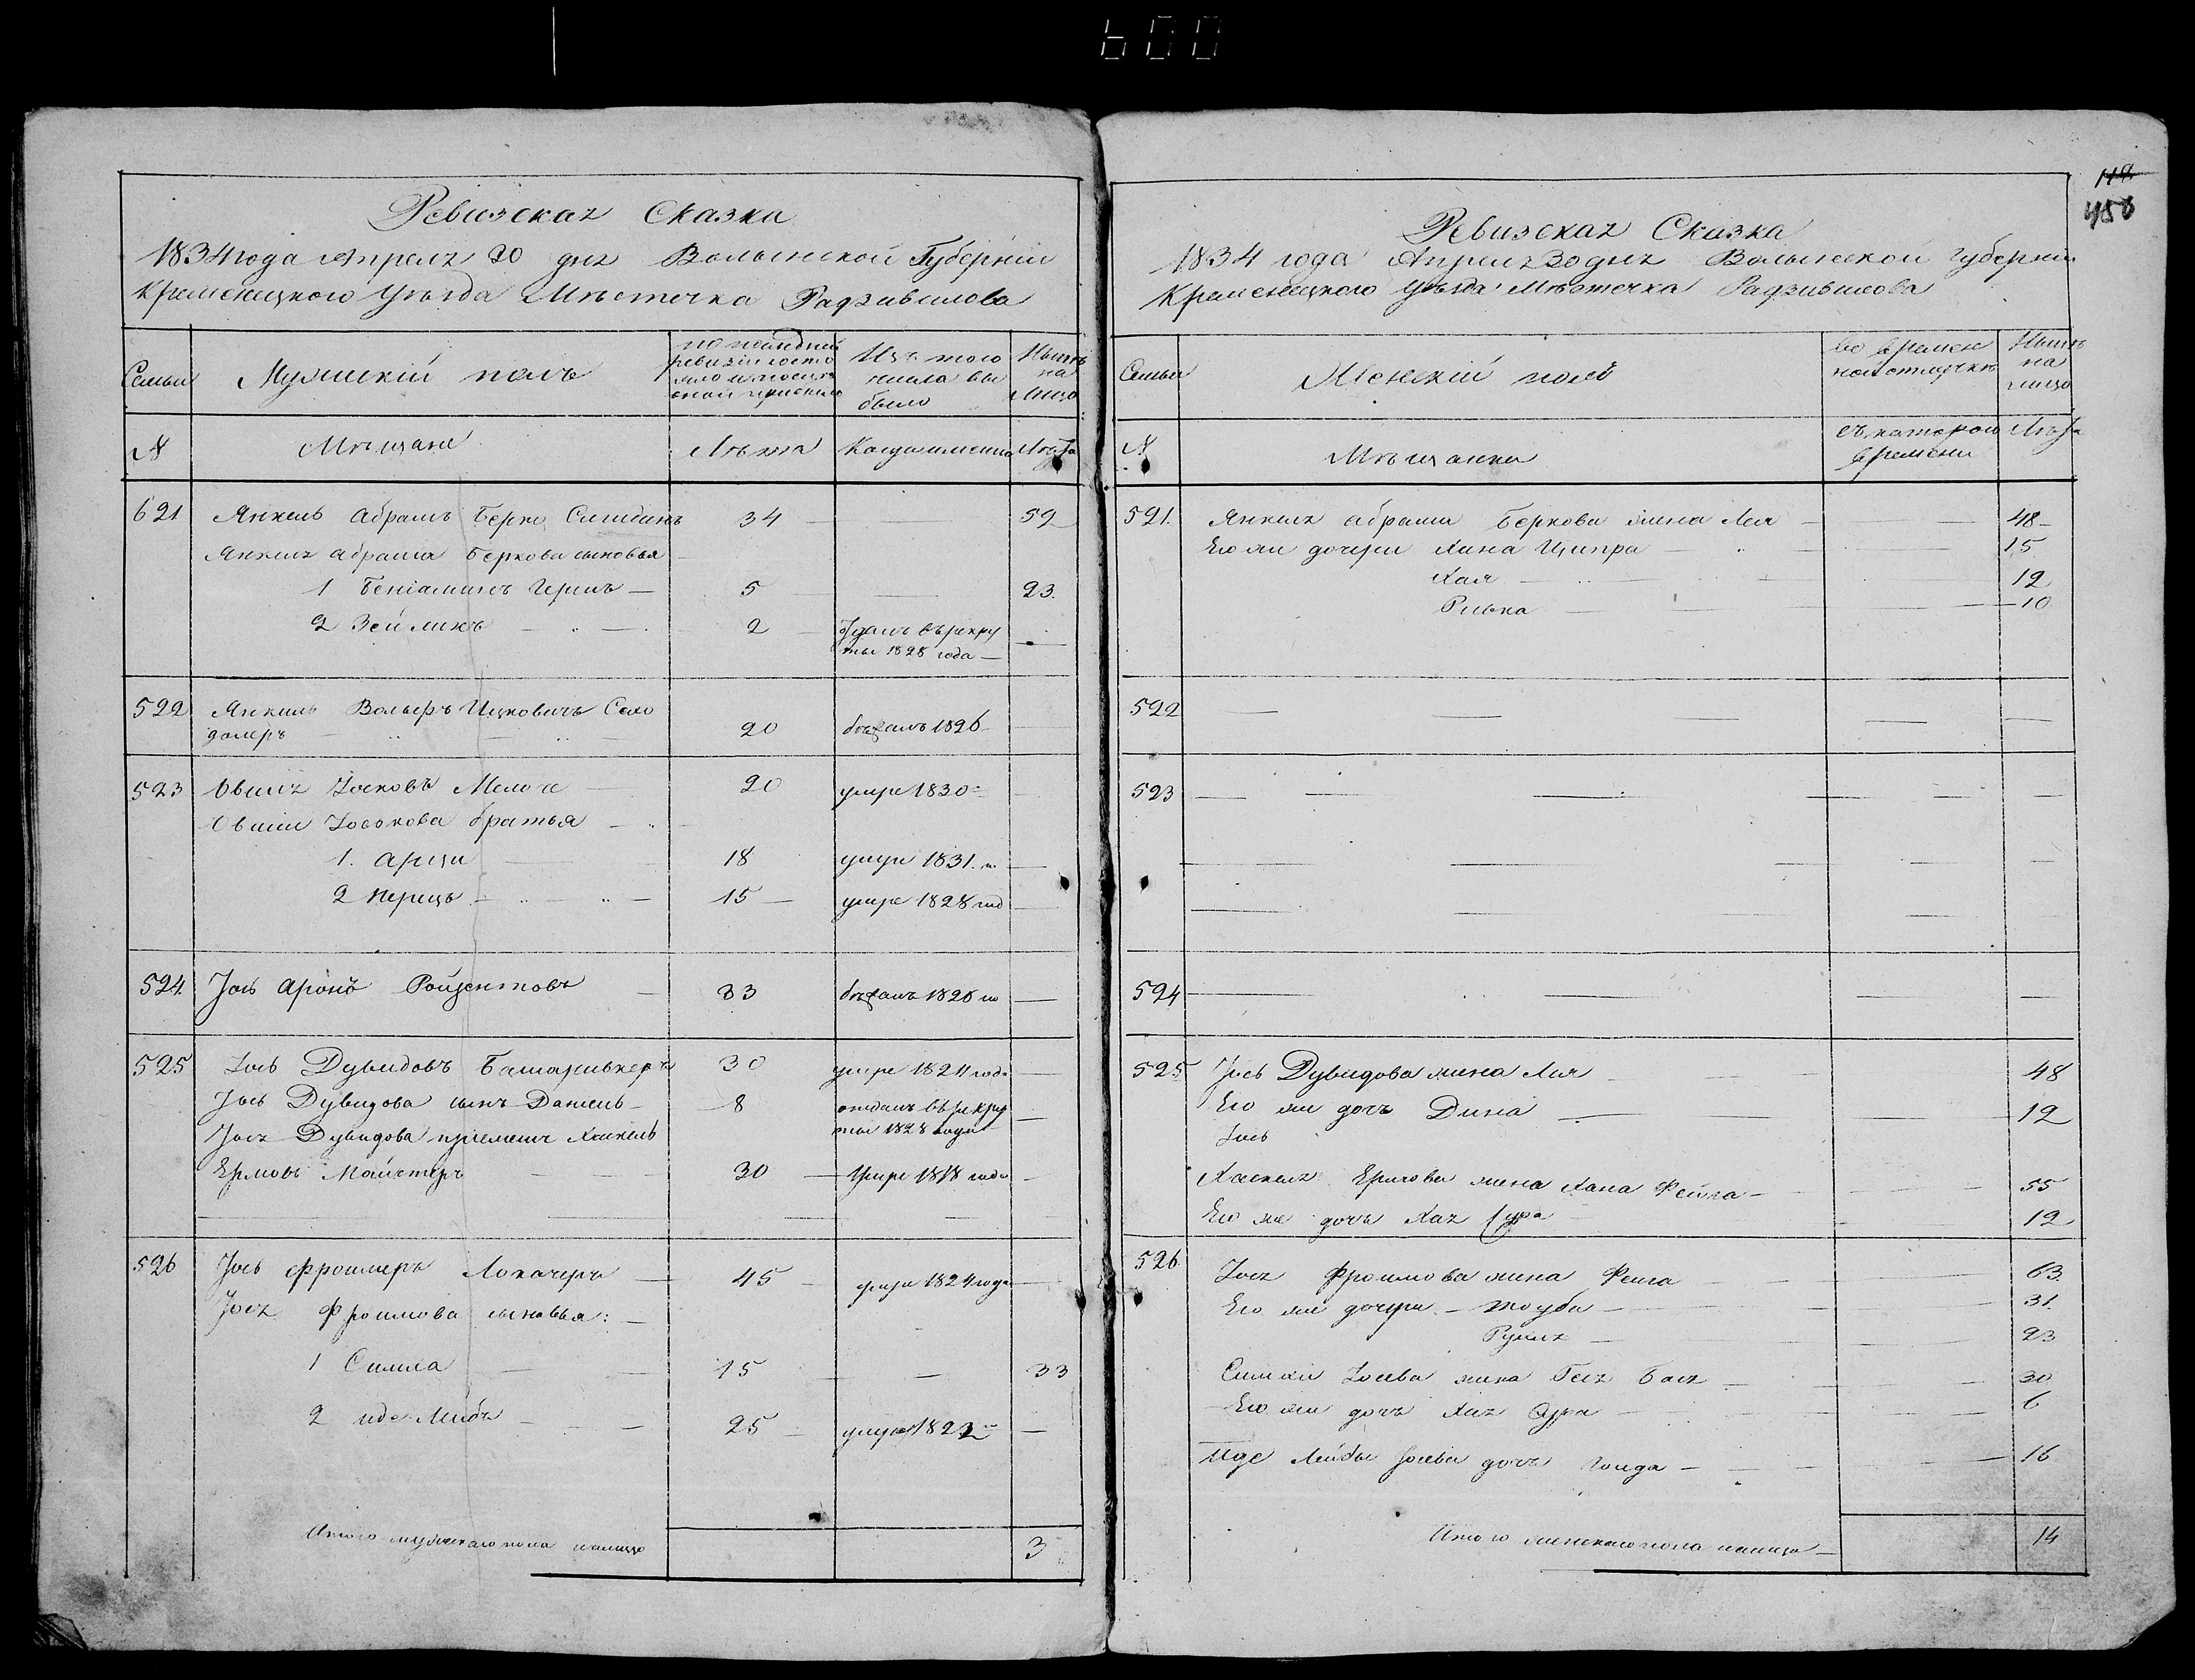 600
Ревизская Сказка
1834 года Апреля 30 дня Волынской Губерніи
Кременецкого Уѣзда Мѣстечка Радзивилова
Семьи
Мужескій полъ
по последней
ревизіи состо
яло и после
Изъ того
числа вы
было
Нынѣ
на
лицо
N
Мѣщане
Лѣта
Когда именно
Лѣта
621
Янкель Абрамъ Берко
34
59
Янкеля Абрама Беркова сыновья
1 Беніаминъ Гершъ
5
23
2 Зейликъ
2
отданъ въ рекру
ты 1828 года
522
Янкель Вольфъ Ицковичъ Сало
даперъ
20
бѣжалъ 1826
523
Овшія Іосковъ
20
умре 1830
Овшіи Іоскова братья
1. Арци
18
умре 1831
2 Перецъ
15
умре 1828 год
524
Іось Аронъ
33
бѣжалъ 1826 го
525
Іось Дувидовъ
30
умре 1824 года
Іося Дувидова сынъ Даніель
8
отданъ въ рекру
ты 1828 года
Іося Дувидова пріемышъ Хаскель
Ермовъ Майстеръ
30
Умре 1818 года
526
Іось Фроимеръ Локачеръ
45
умре 1824 года
Іося Фроимова сыновья:
1 Симха
15
33
2 Иде Лейбъ
25
умре 1822
Итого мужескаго пола налицо
3
119
456
Ревизская Сказка
1834 года Апреля 30 дня Волынской Губерніи
Кременецкого Уѣзда Мѣстечка Радзивилова
Семьи
Женскій полъ
во времен
ной отлучкѣ
Нынѣ
на
лицо
N
Мѣщанки
съ котораго
времени
Лѣта
521.
Янкеля Абрама Беркова жена Лея
48
Его же дочери Хана Ципра
15
Хая
12
Ривка
10
522
523
524
525
Іося Дувидова жена Лея
48
Его же дочь Дина
12
Іось
Хаскеля Ермова жена Хана Фейга
55
Его же дочь Хая Сура
12
526
Іося Фроимова жена Фейга
63.
Его же дочери Тоуба
31.
Рухля
23
Симхи Іосева жена Гея Бася
30
Его же дочь Хая Сура
6
Иде Лейбы Іосева дочь Голда
16
Итого женскаго пола налицо
14